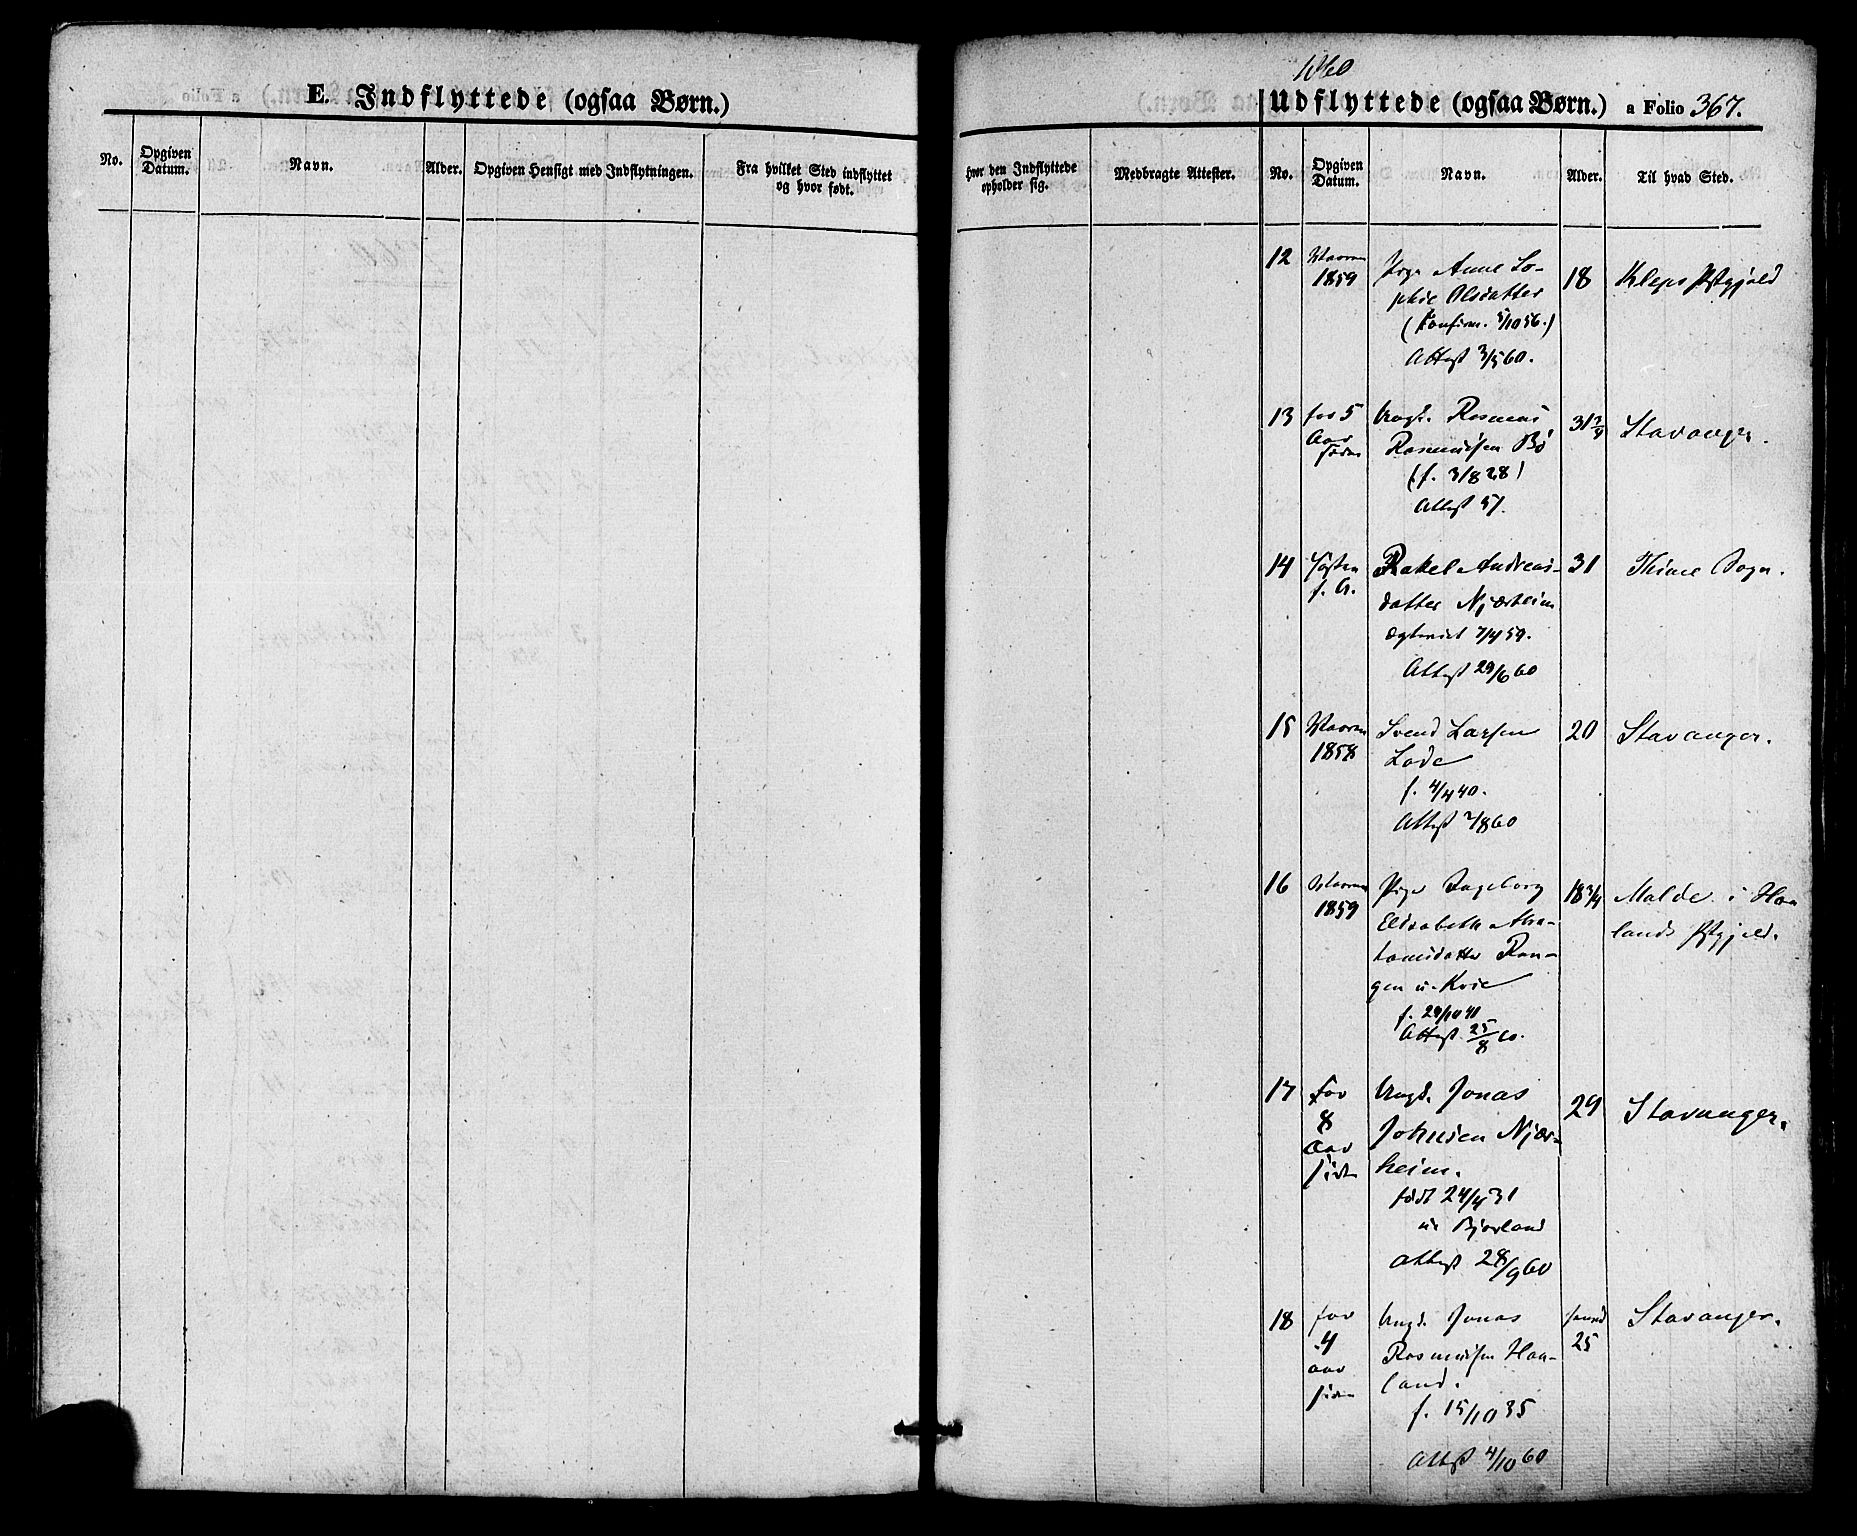 E. Indflyttede (ogsaa Børn.)
No.
Opgiven
Datum.
Navn.
Alder.
Opgiven Hensigt med Indflytningen.
Fra hvilket Sted indflyttet
og hvor født.
1860
Udflyttede (ogsaa Børn.)
a Folio 367.
Hvor den Indflyttede
opholder sig.
Medbragte Attester.
No.
Opgiven
Datum.
Navn.
Alder.
Til hvad Sted.
12
Vaaren
1859
Pige Anne So-
phie Olsdatter
(Konfirm. 5/10 56.)
Attest 3/5 60.
18
Kleps Pstgjeld
13
for 5
Aar
siden
Ungk. Rasmus
Rasmussen Bø
(f. 3/8 28)
Attest
31 3/4
Stavanger.
14
Høsten
f. A.
Rakel Andreas-
datter Njærheim
59.
Attest 29/6 60
31
Thime Sogn.
15
Vaaren
1858
Svend Larsen
Lode
f. 4/4 40.
Attest 7/8 60
20
Stavanger.
16
Vaaren
1859
Pige Ingeborg
Elisabeth Abra-
hamsdatter Ran-
gen u. Kvie
f. 29/10 41
Attest 25/8 60.
18 3/4
Malde i Haa-
lands Pstgjeld.
17
For
8
Aar
siden
Ungk. Jonas
Johnsen Njær-
heim.
født 24/4 31
u. Bjorland
Attest 28/9 60
29
Stavanger.
18
for
4
aar
siden
Ungk. Jonas
Rasmussen Haa-
land.
f. 15/10 35
Attest 4/10 60
25
Stavanger.